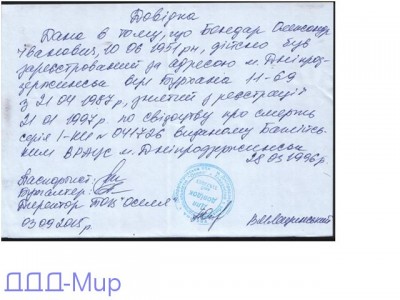 Довідка
Дана в тому, що Бондар Олександр
Іванович, 10 06 1951 рн, дійсно був
зареєстрований за адресою м. Дніпрод-
зержинськ вул Бурхана 11-69
з 21 04 1987р, знятий з реєстрації
21 01 1997р по свідоцтву про смерть
серія І-КИ № 041726 виданому Багліїсь-
ким ВРАЦС м. Дніпродзержинська
28 05 1996р.
Паспортист:
Бухгалтер:
Директор ТОВ "Оселя"
03 09 2015р
ДДД-Мир